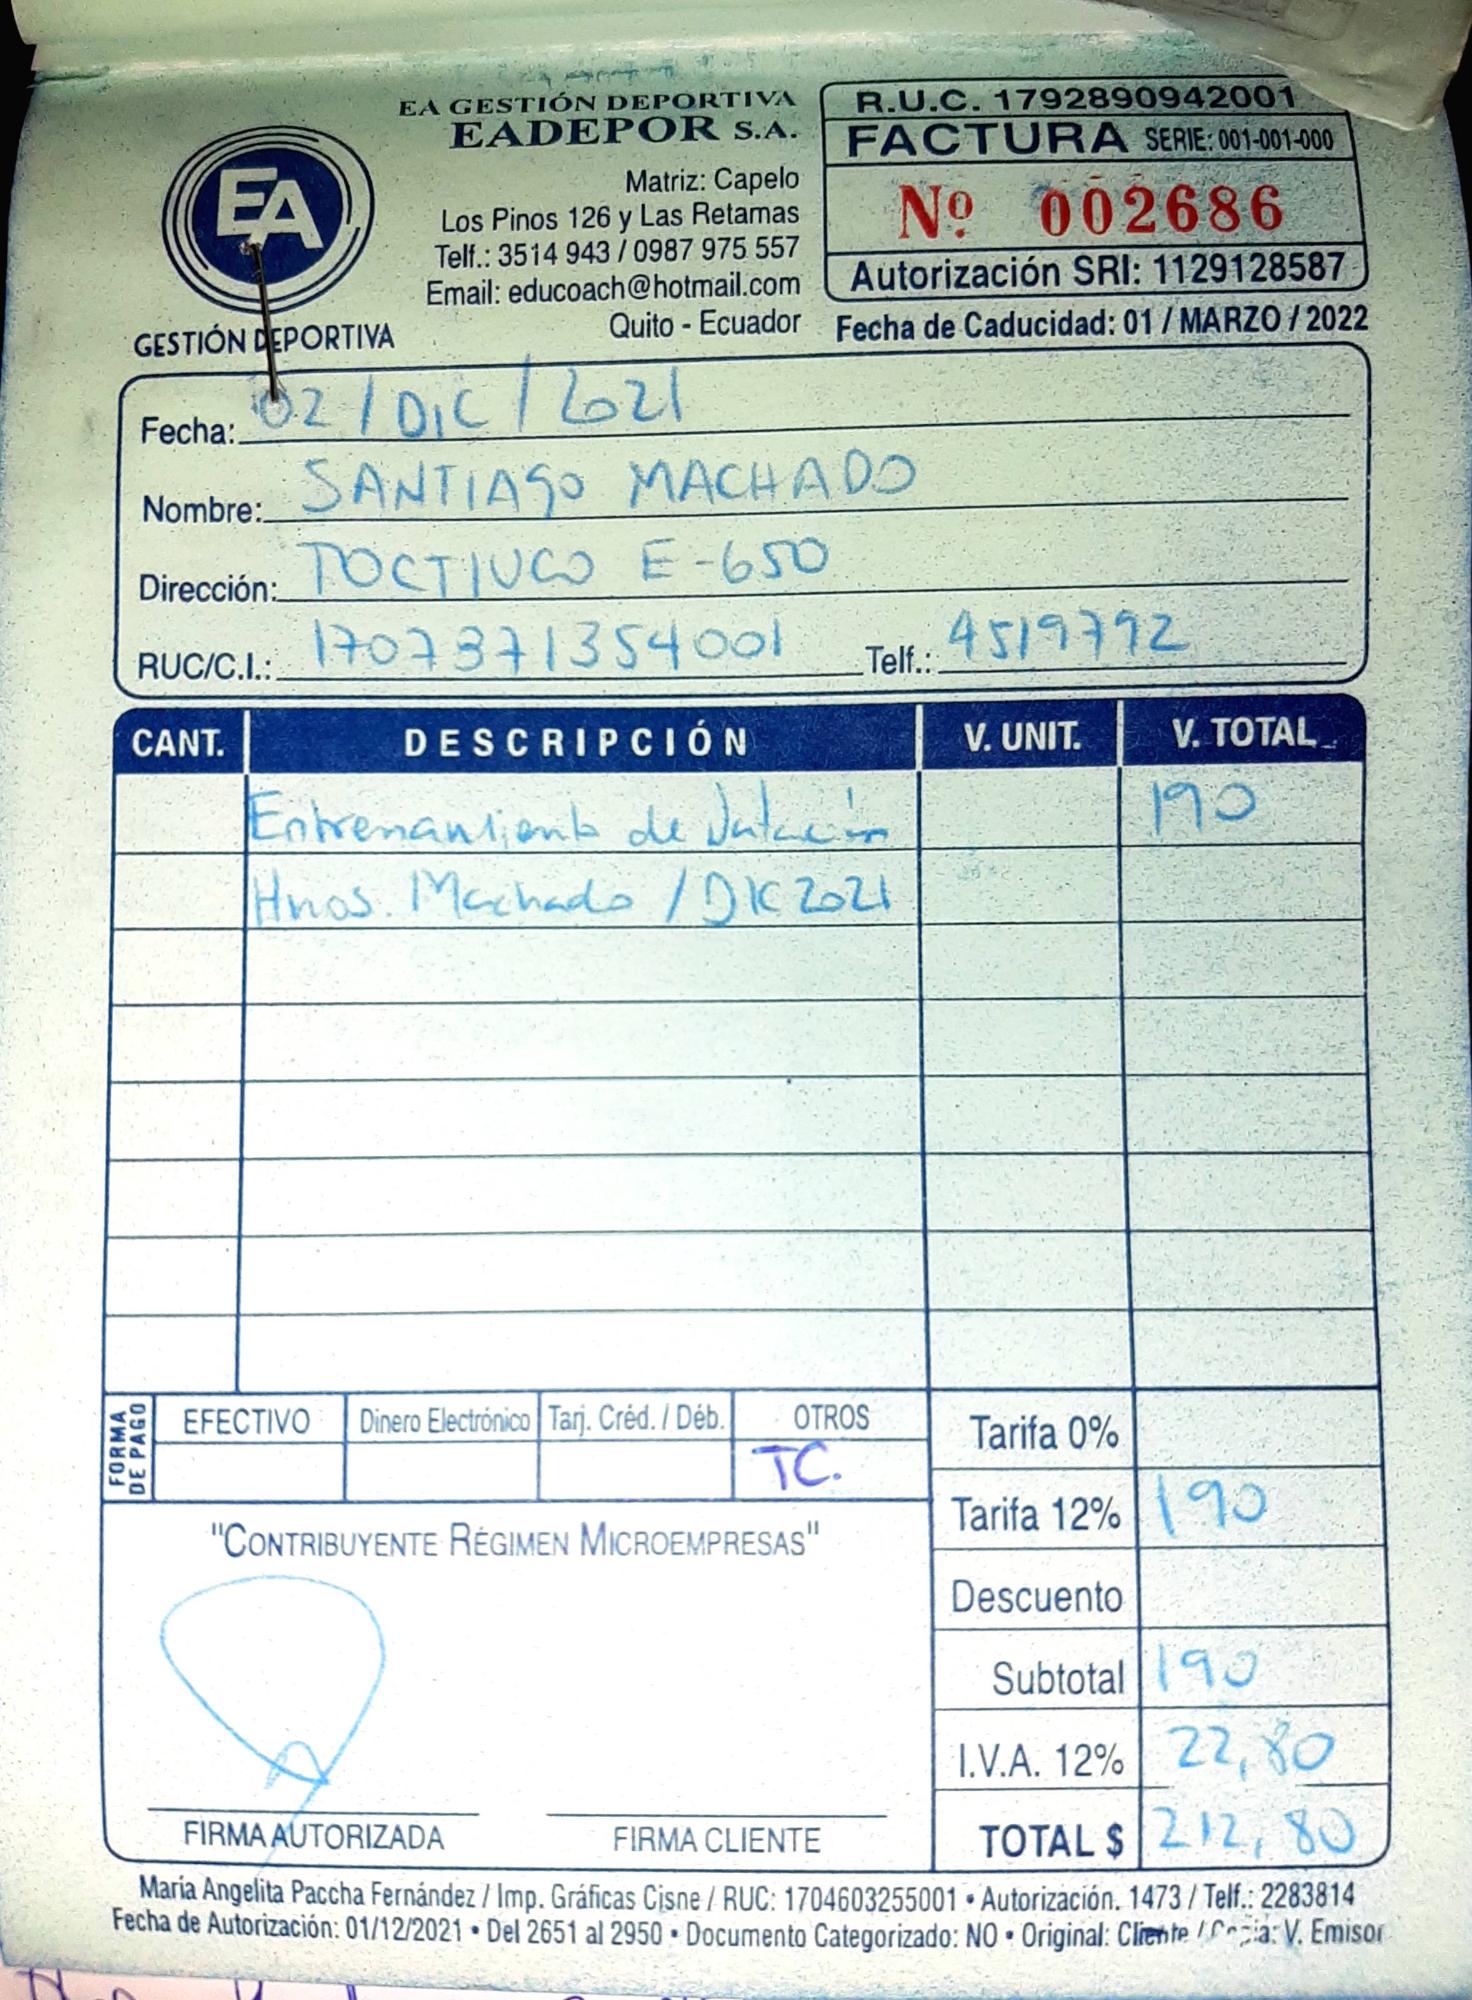 EA GESTIÓN DEPORTIVA
EADEPOR S.A.
Matriz: Capelo
Los Pinos 126 y Las Retamas
Telf.: 3514 943 / 0987 975 557
Email: educoach@hotmail.com
Quito - Ecuador
EA
GESTIÓN DEPORTIVA
R.U.C. 1792890942001
FACTURA SERIE: 001-001-000
Nº 002686
Autorización SRI: 1129128587
Fecha de Caducidad: 01 / MARZO / 2022
Fecha: 02 / DIC / 2021
Nombre: SANTIAGO MACHADO
Dirección: TOCTIUCO E-650
RUC/C.I.: 1707371354001 Telf.: 4519792
CANT. DESCRIPCIÓN V. UNIT. V. TOTAL
Entrenamiento de Natación 190
Hnos. Machado / DIC 2021
FORMA DE PAGO
EFECTIVO Dinero Electrónico Tarj. Créd. / Déb. OTROS
TC.
Tarifa 0%
Tarifa 12% 190
Descuento
Subtotal 190
I.V.A. 12% 22,80
TOTAL $ 212,80
"CONTRIBUYENTE RÉGIMEN MICROEMPRESAS"
FIRMA AUTORIZADA FIRMA CLIENTE
María Angelita Paccha Fernández / Imp. Gráficas Cisne / RUC: 1704603255001 • Autorización. 1473 / Telf.: 2283814
Fecha de Autorización: 01/12/2021 • Del 2651 al 2950 • Documento Categorizado: NO • Original: Cliente / Copia: V. Emisor